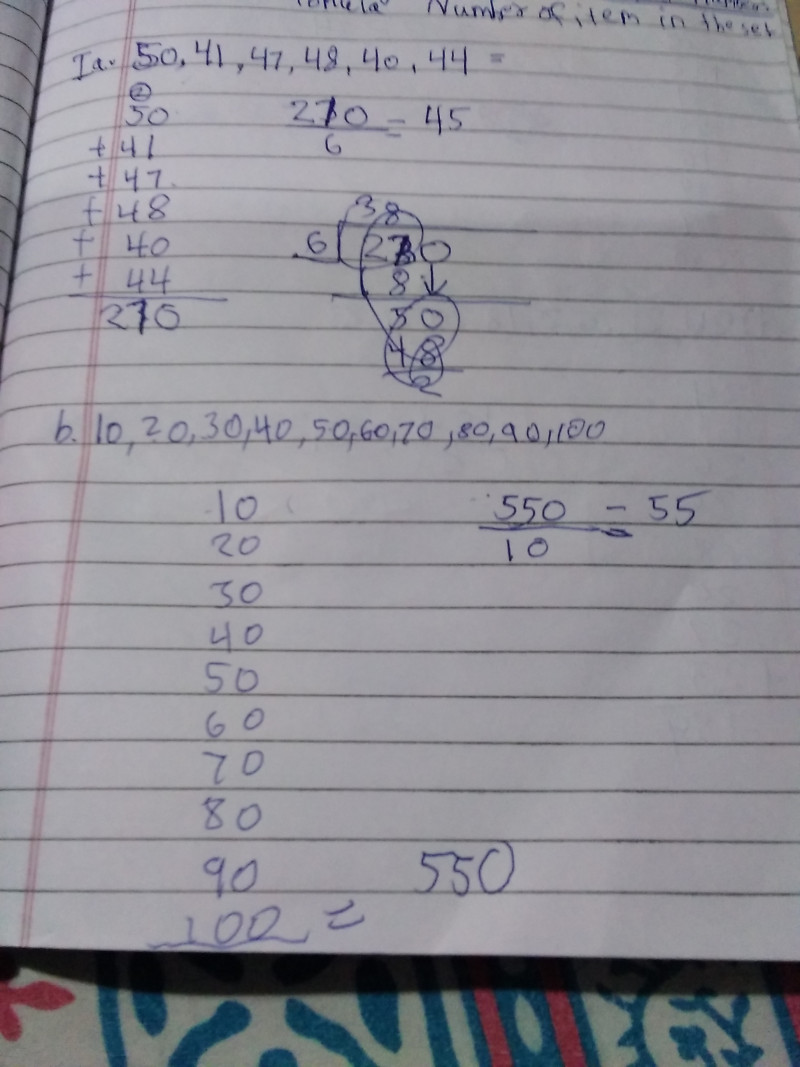 Number of item in the set
1a. 50, 41, 47, 48, 40, 44 =
2
50
+ 41
+ 47
+ 48
+ 40
+ 44
270
270 = 45
6
38
6 230
8
50
48
2
b. 10, 20, 30, 40, 50, 60, 70, 80, 90, 100
10
20
30
40
50
60
70
80
90
100 =
550
550 = 55
10